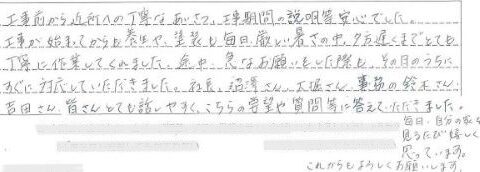 工事前から近所への丁寧なあいさつ、工事期間の説明等安心でした。
工事が始まってからも養生や、塗装も毎日、厳しい暑さの中、夕方遅くまでとても
丁寧に作業してくれました。途中、急なお願いをした際も、その日のうちに
すぐに対応していただきました。社長、沼澤さん、大堀さん、事務の鈴木さん、
吉田さん、皆さんとても話しやすく、こちらの要望や質問等に答えていただきました。
毎日、自分の家を
見るたび嬉しく
思っています。
これからもよろしくお願いします。